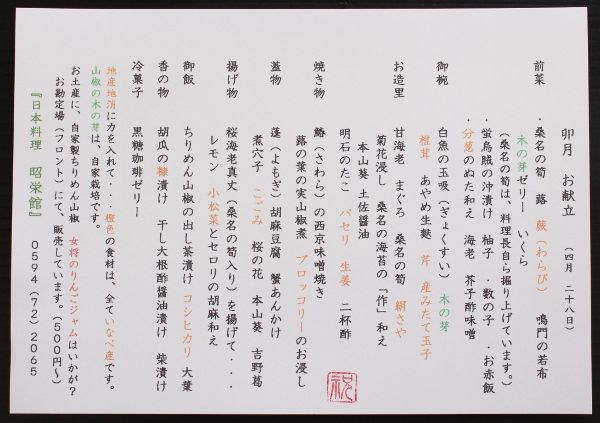 卯月 お献立 (四月 二十八日)
前菜 ・桑名の筍 蕗 蕨(わらび) 鳴門の若布
木の芽ゼリー いくら
(桑名の筍は、料理長自ら掘り上げています。)
・蛍烏賊の沖漬け 柚子 ・数の子 ・お赤飯
・分葱のぬた和え 海老 芥子酢味噌
御椀 白魚の玉吸(ぎょくすい) 木の芽
椎茸 あやめ生麩 芹 産みたて玉子
お造里 甘海老 まぐろ 桑名の筍 絹さや
菊花浸し 桑名の海苔の「作」和え
本山葵 土佐醤油
明石のたこ パセリ 生姜 二杯酢
焼き物 鰆(さわら)の西京味噌焼き
蕗の葉の実山椒煮 ブロッコリーのお浸し
蓋物 蓬(よもぎ)胡麻豆腐 蟹あんかけ
煮穴子 こごみ 桜の花 本山葵 吉野葛
揚げ物 桜海老真丈(桑名の筍入り)を揚げて・・・
レモン 小松菜とセロリの胡麻和え
御飯 ちりめん山椒の出し茶漬け コシヒカリ 大葉
香の物 胡瓜の糠漬け 干し大根酢醤油漬け 柴漬け
冷菓子 黒糖珈琲ゼリー
地産地消に力を入れて・・・橙色の食材は、全ていなべ産です。
山椒の木の芽は、自家栽培です。
お土産に、自家製ちりめん山椒 女将のりんごジャムはいかが?
お勘定場(フロント)にて、販売しています。(500円~)
『日本料理 昭栄館』 0594(72)2065
祝